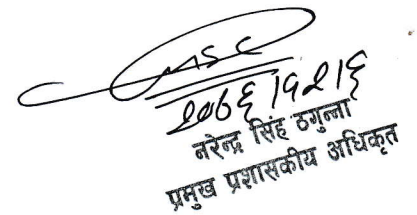 २०७६।१२।६
नरेन्द्र सिंह ठगुन्ना
प्रमुख प्रशासकीय अधिकृत